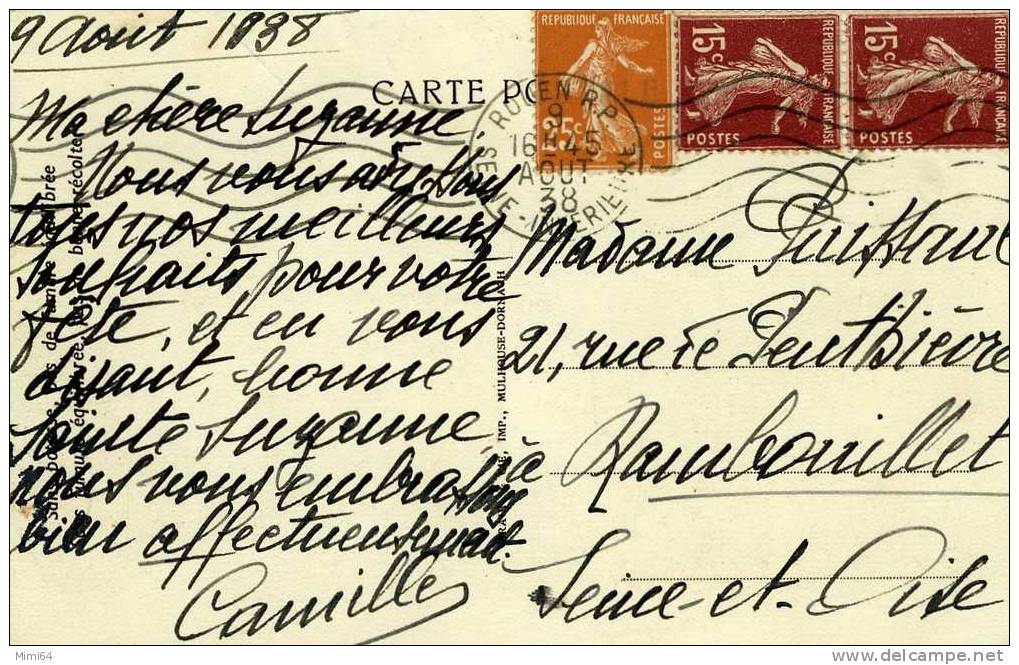 9 Août 1938
CARTE PO
RÉPUBLIQUE FRANÇAISE
25c
POSTES
15c
RÉPUBLIQUE FRANÇAISE
POSTES
15c
RÉPUBLIQUE FRANÇAISE
POSTES
ROUEN R.P.
9
16 45
AOUT
38
SEINE-INFERIEURE
Ma chère Suzanne,
Nous vous adressons
tous nos meilleurs
souhaits pour votre
fête, et en vous
disant, bonne
sainte Suzanne,
nous vous embrassons
bien affectueusement.
Camille
IMP., MULHOUSE-DORNACH
Madame Puissant
21, rue de Penthièvre
à Rambouillet
Seine-et-Oise
Mimi64
delcampe.net